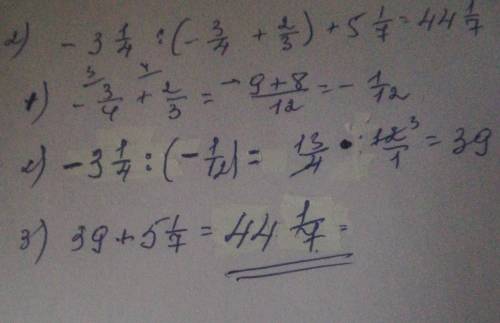 2) - 3 1/4 : (- 3/4 + 2/3) + 5 1/7 = 44 1/7
1) - 3/4 + 2/3 = -9+8/12 = - 1/12
2) - 3 1/4 : (- 1/12) = 13/4 · 12 3/1 = 39
3) 39 + 5 1/7 = 44 1/7 =